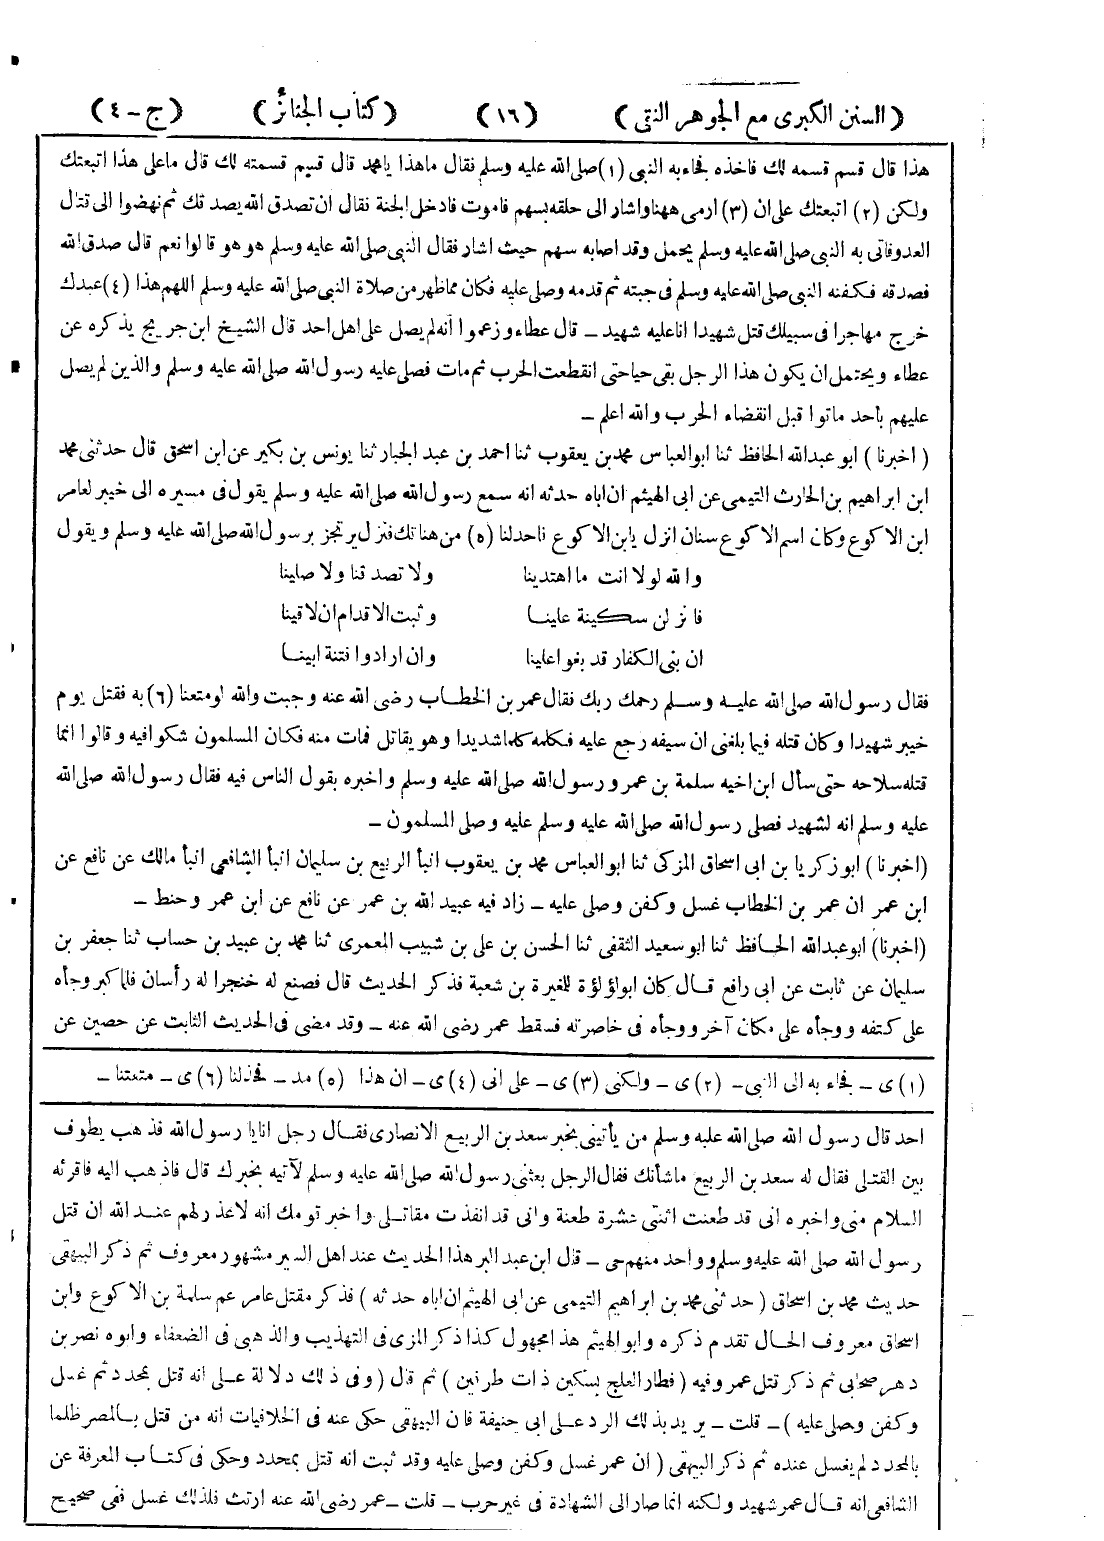 (السنن الكبرى مع الجوهر النقى) (١٦) (كتاب الجنائز) (ج - ٤)
هذا قال قسم قسمه لك فاخذه فجاء به النبى (١) صلى الله عليه وسلم فقال ماهذا يامحمد قال قسيم قسمته لك قال ماعلى هذا اتبعتك
ولكن (٢) اتبعتك على ان (٣) ارمى ههنا واشار الى حلقه بسهم فاموت فادخل الجنة فقال ان تصدق الله يصدقك ثم نهضوا الى قتال
العدو فاتى به النبى صلى الله عليه وسلم يحمل وقد اصابه سهم حيث اشار فقال النبى صلى الله عليه وسلم هو هو قالوا نعم قال صدق الله
فصدقه فكفنه النبى صلى الله عليه وسلم فى جبته ثم قدمه وصلى عليه فكان مماظهر من صلاة النبى صلى الله عليه وسلم اللهم هذا (٤) عبدك
خرج مهاجرا فى سبيلك قتل شهيدا انا عليه شهيد ــ قال عطاء وزعموا أنه لم يصل على اهل احد قال الشيخ ابن جريج يذكره عن
عطاء ويحتمل ان يكون هذا الرجل بقى حيا حتى انقطعت الحرب ثم مات فصلى عليه رسول الله صلى الله عليه وسلم والذين لم يصل
عليهم بأحد ماتوا قبل انقضاء الحرب والله اعلم ــ
(اخبرنا) ابو عبدالله الحافظ ثنا ابوالعباس محمد بن يعقوب ثنا احمد بن عبد الجبار ثنا يونس بن بكير عن ابن اسحق قال حدثنى محمد
ابن ابراهيم بن الحارث التيمى عن ابى الهيثم ان اباه حدثه انه سمع رسول الله صلى الله عليه وسلم يقول فى مسيره الى خيبر لعامر
ابن الاكوع وكان اسم الاكوع سنان انزل يا ابن الاكوع فاحدلنا (٥) من هناتك فنزل يرتجز برسول الله صلى الله عليه وسلم ويقول
والله لولا انت ما اهتدينا ولا تصدقنا ولا صلينا
فانزلن سكينة علينا وثبت الاقدام ان لاقينا
ان بنى الكفار قد بغوا علينا وان ارادوا فتنة ابينا
فقال رسول الله صلى الله عليه وسلم رحمك ربك فقال عمر بن الخطاب رضى الله عنه وجبت والله لو متعنا (٦) به فقتل يوم
خيبر شهيدا وكان قتله فيما بلغنى ان سيفه رجع عليه فكلمه كلما شديدا وهو يقاتل فمات منه فكان المسلمون شكوا فيه وقالوا انما
قتله سلاحه حتى سأل ابن اخيه سلمة بن عمرو رسول الله صلى الله عليه وسلم واخبره بقول الناس فيه فقال رسول الله صلى الله
عليه وسلم انه لشهيد فصلى رسول الله صلى الله عليه وسلم عليه وصلى المسلمون ــ
(اخبرنا) ابو زكريا بن ابى اسحاق المزكى ثنا ابوالعباس محمد بن يعقوب انبأ الربيع بن سليمان انبأ الشافعى انبأ مالك عن نافع عن
ابن عمر ان عمر بن الخطاب غسل وكفن وصلى عليه ــ زاد فيه عبيد الله بن عمر عن نافع عن ابن عمر وحنط ــ
(اخبرنا) ابو عبدالله الحافظ ثنا ابو سعيد الثقفى ثنا الحسن بن على بن شبيب المعمرى ثنا محمد بن عبيد بن حساب ثنا جعفر بن
سليمان عن ثابت عن ابى رافع قال كان ابو لؤلؤة للمغيرة بن شعبة فذكر الحديث قال فصنع له خنجرا له رأسان فلما كبر وجأه
على كتفه ووجأه على مكان آخر ووجأه فى خاصرته فسقط عمر رضى الله عنه ــ وقد مضى فى الحديث الثابت عن حصين عن
(١) ى ــ فجاء به الى النبى ــ (٢) ى ــ ولكنى (٣) ى ــ على انى (٤) ى ــ ان هذا (٥) مد ــ فخذلنا (٦) ى ــ متعتنا ــ
احد قال رسول الله صلى الله عليه وسلم من يأتينى بخبر سعد بن الربيع الانصارى فقال رجل انا يا رسول الله فذهب يطوف
بين القتلى فقال له سعد بن الربيع ماشأنك فقال الرجل بعثنى رسول الله صلى الله عليه وسلم لآتيه بخبرك قال فاذهب اليه فاقرئه
السلام منى واخبره انى قد طعنت اثنتى عشرة طعنة وانى قد انفذت مقاتلى واخبر قومك انه لاعذر لهم عند الله ان قتل
رسول الله صلى الله عليه وسلم وواحد منهم حى ــ قال ابن عبد البر هذا الحديث عند اهل السير مشهور معروف ثم ذكر البيهقى
حديث محمد بن اسحاق (حدثنى محمد بن ابراهيم التيمى عن ابى الهيثم ان اباه حدثه) فذكر مقتل عامر عم سلمة بن الاكوع وابن
اسحاق معروف الحال تقدم ذكره وابو الهيثم هذا مجهول كذا ذكر المزى فى التهذيب والذهبى فى الضعفاء وابوه نصر بن
دهر صحابى ثم ذكر قتل عمر وفيه (فطار العلج بسكين ذات طرفين) ثم قال (وفى ذلك دلالة على انه قتل بمحدد ثم غسل
وكفن وصلى عليه) ــ قلت ــ يريد بذلك الرد على ابى حنيفة فان البيهقى حكى عنه فى الخلافيات انه من قتل بالمصر ظلما
بالمحدد لم يغسل عنده ثم ذكر البيهقى (ان عمر غسل وكفن وصلى عليه وقد ثبت انه قتل بمحدد وحكى فى كتاب المعرفة عن
الشافعى انه قال عمر شهيد ولكنه انما صار الى الشهادة فى غير حرب ــ قلت ــ عمر رضى الله عنه ارتث فلذلك غسل ففى صحيح